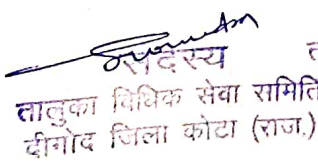 सदस्य त
तालुका विधिक सेवा समिति
दीगोद जिला कोटा (राज.)